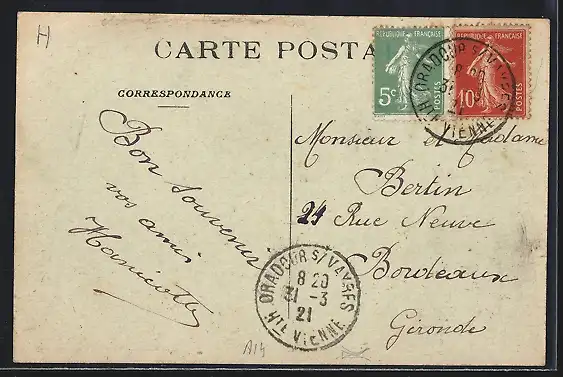 H
CARTE POSTA
REPUBLIQUE FRANÇAISE
5c
POSTES
REPUBLIQUE FRANÇAISE
10c
POSTES
ORADOUR S/VAYRES
Hte VIENNE
CORRESPONDANCE
Bon souvenir
vos amis
Monsieur et Madame
Bertin
24 Rue Neuve
Bordeaux
Gironde
ORADOUR S/VAYRES
8 20
31 -3
21
Hte VIENNE
A14